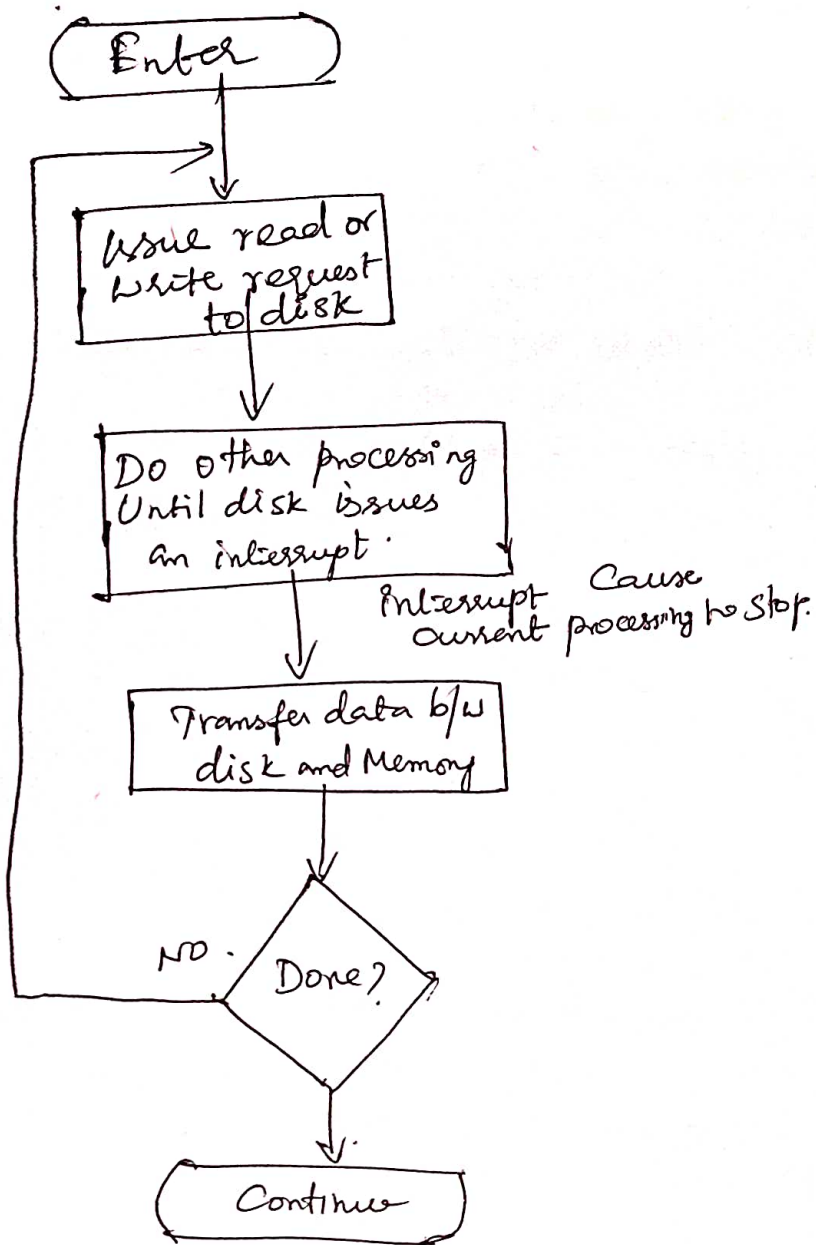 Enter
Issue read or
write request
to disk
Do other processing
Until disk issues
an interrupt.
interrupt Cause
current processing to stop.
Transfer data b/w
disk and Memory
NO.
Done?
Continue